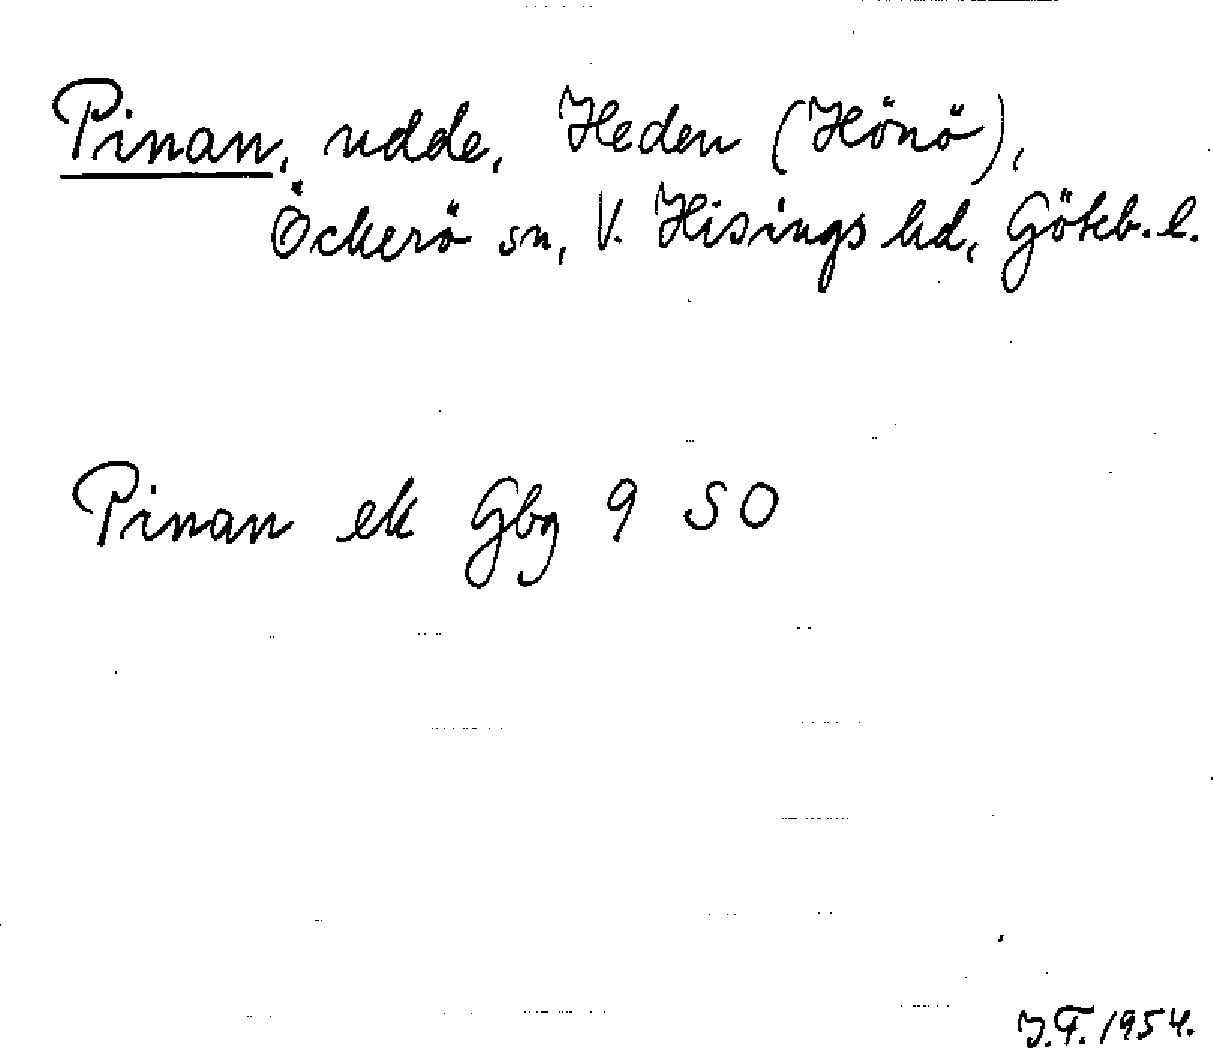 Pinan, udde, Heden (Hönö),
Öckerö sn, V. Hisings hd, Göteb. l.
Pinan ek Gbg 9 SO
J.F. 1954.